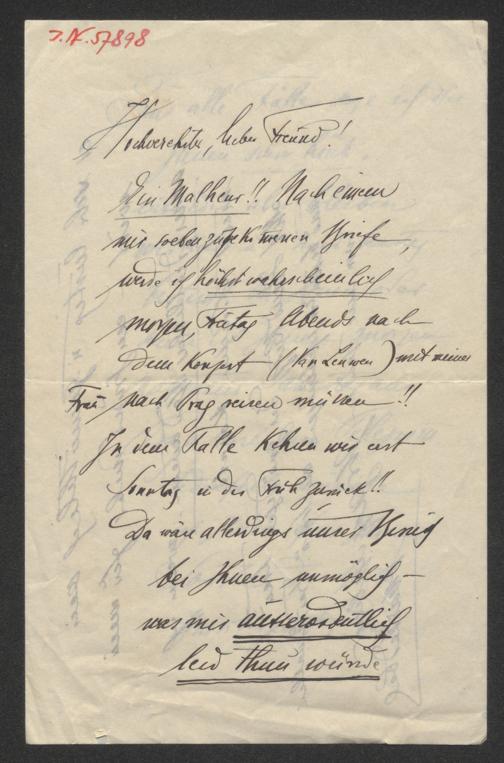 J.N. 57898
Hochverehrter, lieber Freund!
Ein Malheur!! Nach einem
mir soeben zugekommenen Briefe,
werde ich höchst wahrscheinlich
morgen, Freitag Abends nach
dem Konzert (Van Leuwen) mit meiner
Frau nach Prag reisen müssen!!
In dem Falle kehren wir erst
Sonntag in der Früh zurück!!
Da wäre allerdings unser
bei Ihnen unmöglich –
was mir äusserordentlich
leid thun würde